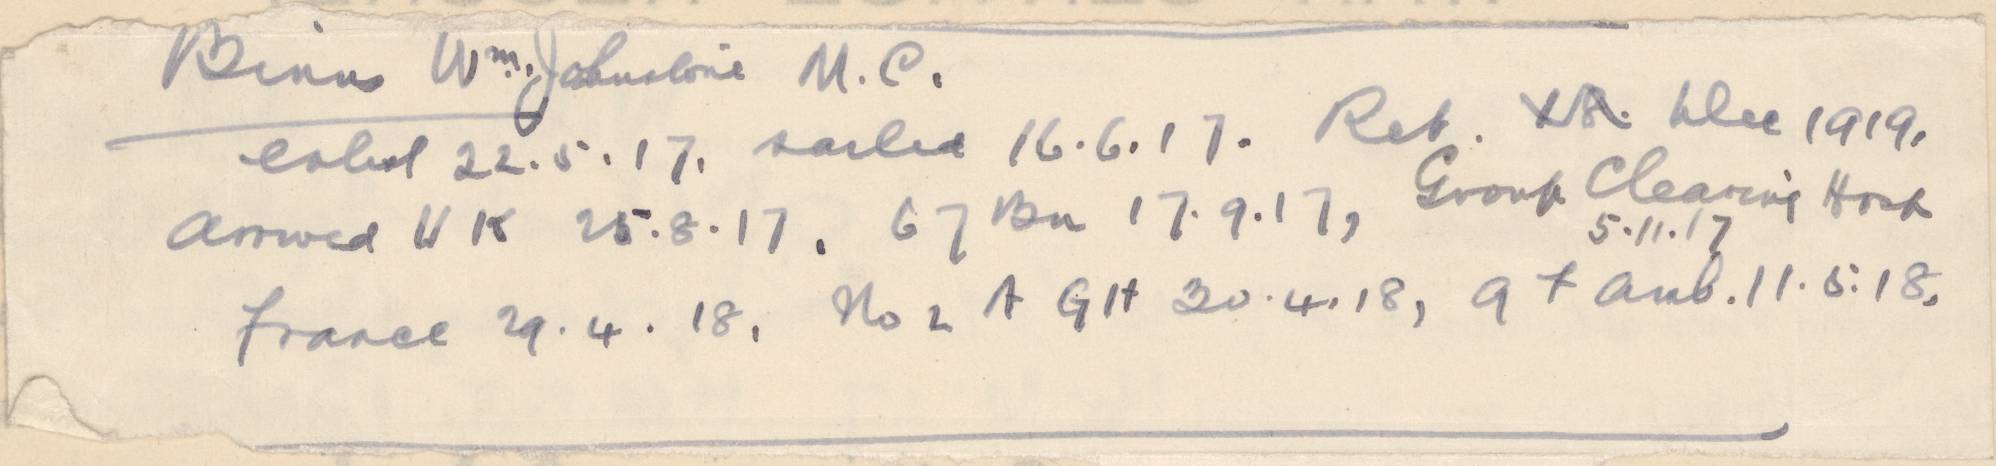 Binns Wm. Johnstone M.C.
enlist 22.5.17. sailed 16.6.17. Ret. Dec 1919.
arrived UK 25.8.17. 67 Bn 17.9.17, Group Clearing Hosp
5.11.17
France 29.4.18. No 2 A G H 30.4.18, 9 F Amb. 11.5.18.